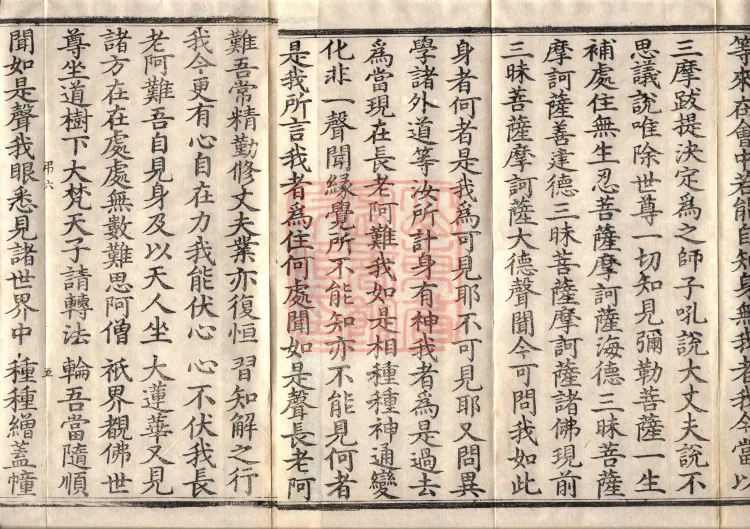 等來在會中若能自知身無我者我今當以
三摩跋提決定爲之師子吼說大丈夫說不
思議說唯除世尊一切知見彌勒菩薩一生
補處住無生忍菩薩摩訶薩海德三昧菩薩
摩訶薩善達德三昧菩薩摩訶薩諸佛現前
三昧菩薩摩訶薩大德聲聞今可問我如此
身者何者是我爲可見耶不可見耶又問異
學諸外道等汝所計身有神我者爲是過去
爲當現在長老阿難我如是相種種神通變
化非一聲聞緣覺所不能知亦不能見何者
是我所言我者爲住何處聞如是聲長老阿
難吾常精勤修丈夫業亦復恒習知解之行
我今更有心自在力我能伏心心不伏我長
老阿難吾自見身及以天人坐大蓮華又見
諸方在在處處無數難思阿僧祇界覩佛世
尊坐道樹下大梵天子請轉法輪吾當隨順
弔六 五
聞如是聲我眼悉見諸世界中種種繒蓋幢